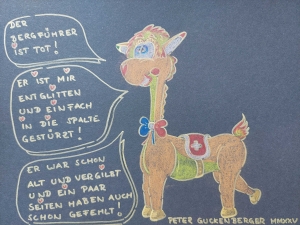 DER
BERGFÜHRER
IST TOT!
ER IST MIR
ENTGLITTEN
UND EINFACH
IN DIE SPALTE
GESTÜRZT!
ER WAR SCHON
ALT UND VERGILBT
UND EIN PAAR
SEITEN HABEN AUCH
SCHON GEFEHLT!
PETER GUCKENBERGER MMXXV